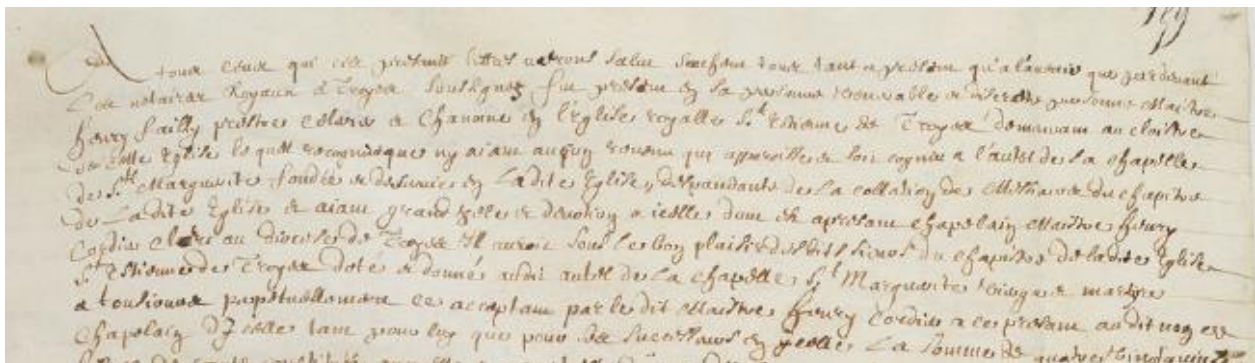 A tous ceux qui ces presents lettres verront salut scachent tous tant a present qu'a l'avenir que pardevant
Les notaires Royaux a Troyes soubsignez fut present en sa personne venerable et discrete personne Maistre
henry failly prestre et Chanoine en l'Eglise royalle St Estienne de Troyes demeurant au cloistre
de cette Eglise lequel recognu que ny aiant aucun revenu qui de soit cognu a l'autel de la chapelle
de Ste Marguerite fondée et desservie en ladite Eglise, dependante de la collation de du chapitre
de Ladite Eglise et aiant grand zele et devotion a icelle dont est apresent chapelain Maistre henry
Cordier clerc au diocese de Troyes Il auroit sous le bon plaisir desdits sieurs du chapitre de ladite Eglise
St Estienne de Troyes doté et donné audit autel de la chapelle St Marguerite vierge et martyre
a tousiours perpetuellement ce acceptant par le dit Maistre henry Cordier a ce present audit nom et
Chapelain D'Icelle tant pour luy que pour ses successeurs en Icelle La somme de quatre